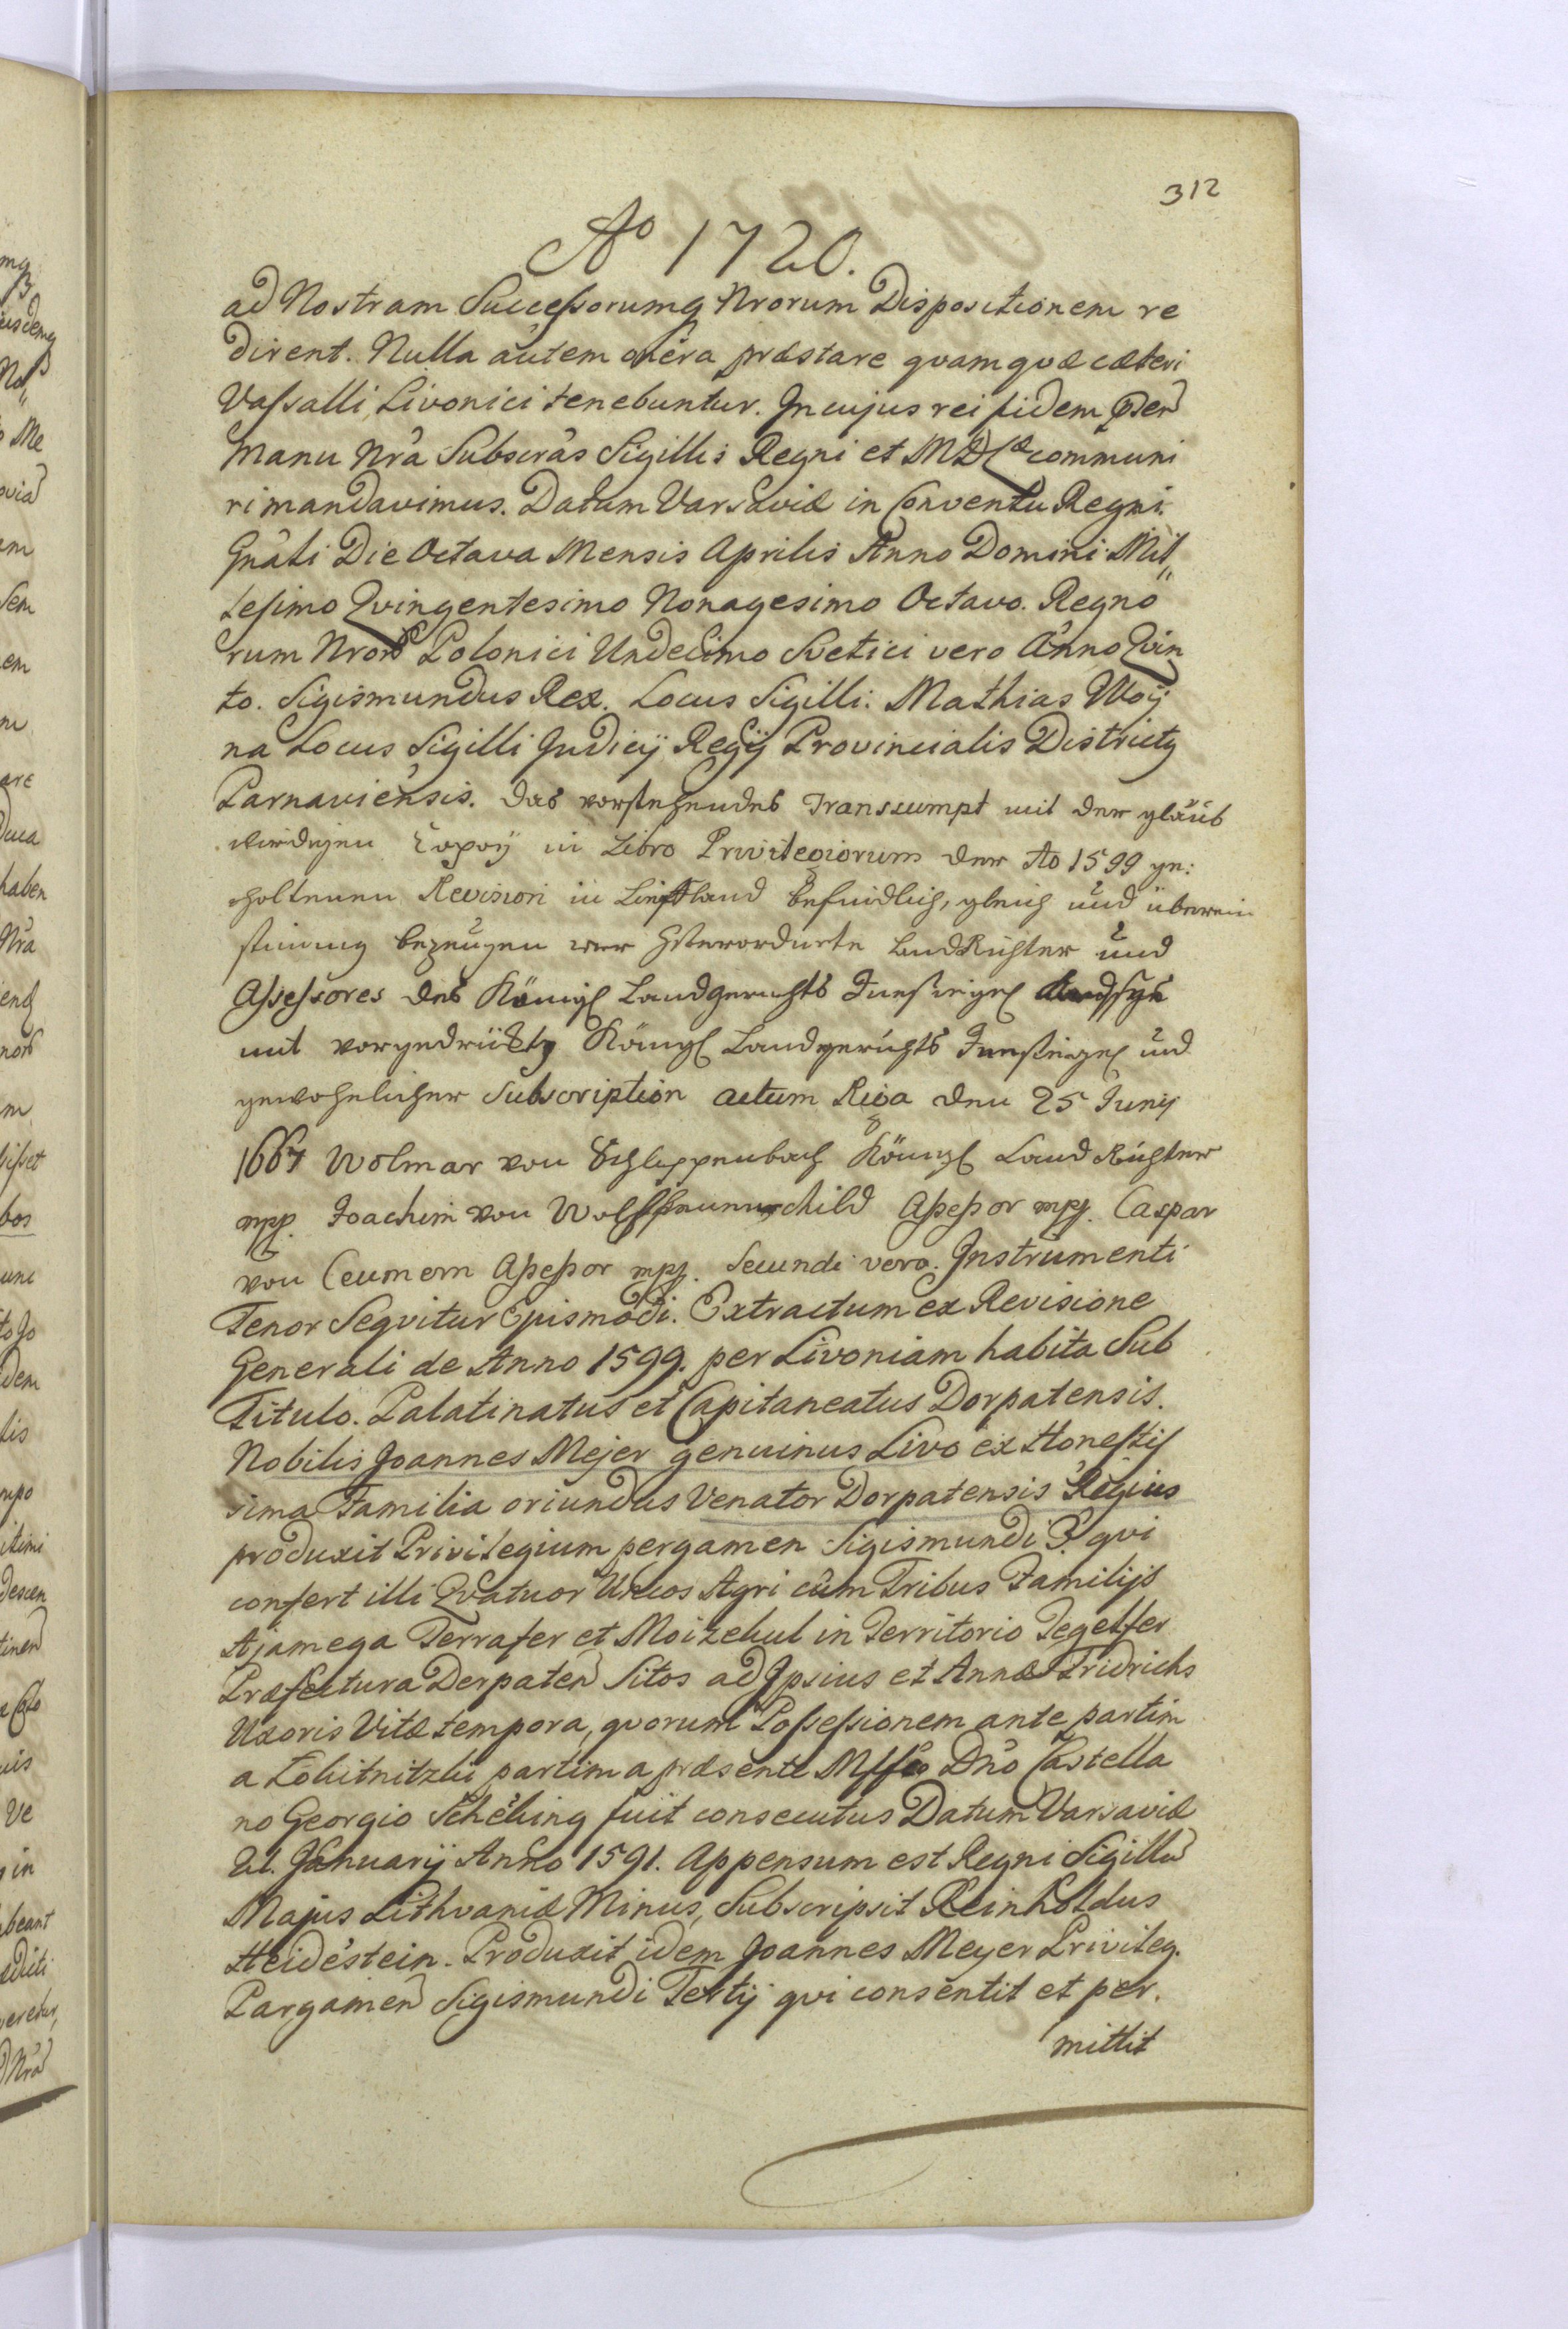 312
Ao 1720.
ad Nostram Successorumq Nrorum Dispositionem re
dirent. Nulla autem onera præstare qvam qvæ cæteri
Vassalli Livonici tenebuntur. In cujus rei fidem
Manu Nra Subscras Sigillis Regni et MDL communi
ri mandavimus. Datum Varsaviæ in Conventu Regni
Gnāli Die Octava Mensis Aprilis Anno Domini Mil„
lesimo Qvingentesimo Nonagesimo Octavo. Regno
rum Nror Polonici Undecimo Svetici vero Anno Qvin
to. Sigismundus Rex. Locus Sigilli: Mathias Woy
na Locus Sigilli Judicij Regij Provincialis Districtq
Parnaviensis. Das vorstehendes Transsumpt mit der glaub
wirdigen Copoy in Libro Privilegiorum der Ao 1599 ge:
haltenen Revision in Liefland befindlich, gleich und überein
stimmig bezeugen wir LandRichter und
Assessores des Königl Landgerichts
mit vorgedrücktq Königl Landgerichts Innsiegel und
gewohnlicher Subscription actum Riga den 25 Junij
1667 Wolmar von Schlippenbach Königl LandRichter
mpp. Joachim von Assessor mpp. Caspar
von Ceumern Assessor mpp. Secundi vero. Instrumenti
Tenor Seqvitur Ejusmodi. Extractum ex Revisione
Generali de Anno 1599. per Livoniam habita Sub
Titulo. Palatinatus et Capitaneatus Dorpatensis.
Nobilis Joannes Mejer genuinus Livo ex Honestis
sima Familia oriundus Venator Dorpatensis Regius
produxit Privilegium pergamen Sigismundi 3. qvi
confert illi Qvatuor Uncos Agri cum Tribus Familijs
Ajamega Terrafer et Moizekul in Territorio Tegelfer
Præfectura Derpaten Sitos ad Ipsius et Annæ Fridrichs
Uxoris Vitæ tempora, qvorum Possessionem ante partim
a partim a præsente Dno Castella
no Georgio Schehing fuit consecutus Datum Varsaviæ
21. Januarij Anno 1591. Appensum est Regni Sigillu
Majus Lithvaniæ Minus, Subscripsit Reinholdus
Heidestein. Produxit idem Joannes Meyer Privileg.
Pargamen Sigismundi Tertij qvi consentit et per.
mittit